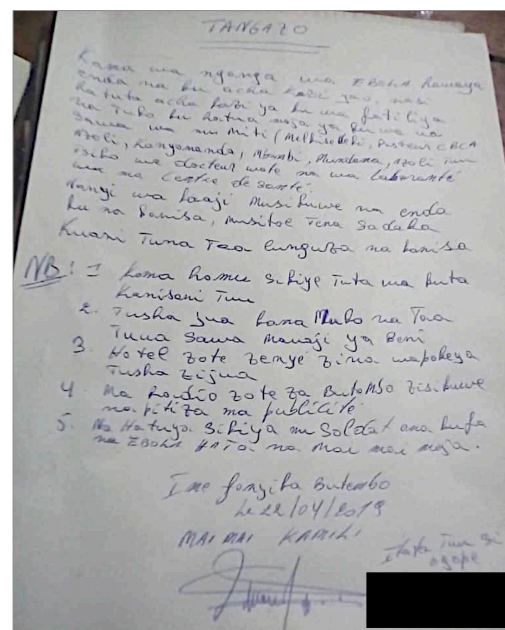 TANGAZO
Kama wa nganga wa EBOLA hawaya
enda na ku acha kazi yao, nasi
hatuta acha kazi ya ku wa fatiliya
na Tuko ku hatua moja ya kuwa ua
Sawa wa mu Miti (Melkisedeki, Pasteur CBCA
Azoli, Kanyamanda, Mbambi, Mundama, Azoli Tun
wa docteur wote na wa laboranté
wa ma Centre de santé.
Nanyi wa Raaji Musikuwe na enda
ku na Kanisa, musitoe Tena Sadaka
Kwani Tuna Taa lunguza na kanisa
NB: 1 Koma homu Sikiye Tuta wa kuta
Kanisani Tuu
2. Tusha jua kana Muko na Taa
Tuua Sawa Mauaji ya Beni
3. Hotel zote zenye zina wapokeya
Tusha zijua
4. Ma Radio zote za Butembo zisikuwe
na pitiza ma publicité
5. Hatuya Sikiya mu Soldat ana kufa
na EBOLA HATA na Mai mai moja.
Ime fanyika Butembo
Le 22/04/2019
MAI MAI KAMILI
Itafa Tuu Si
ogope